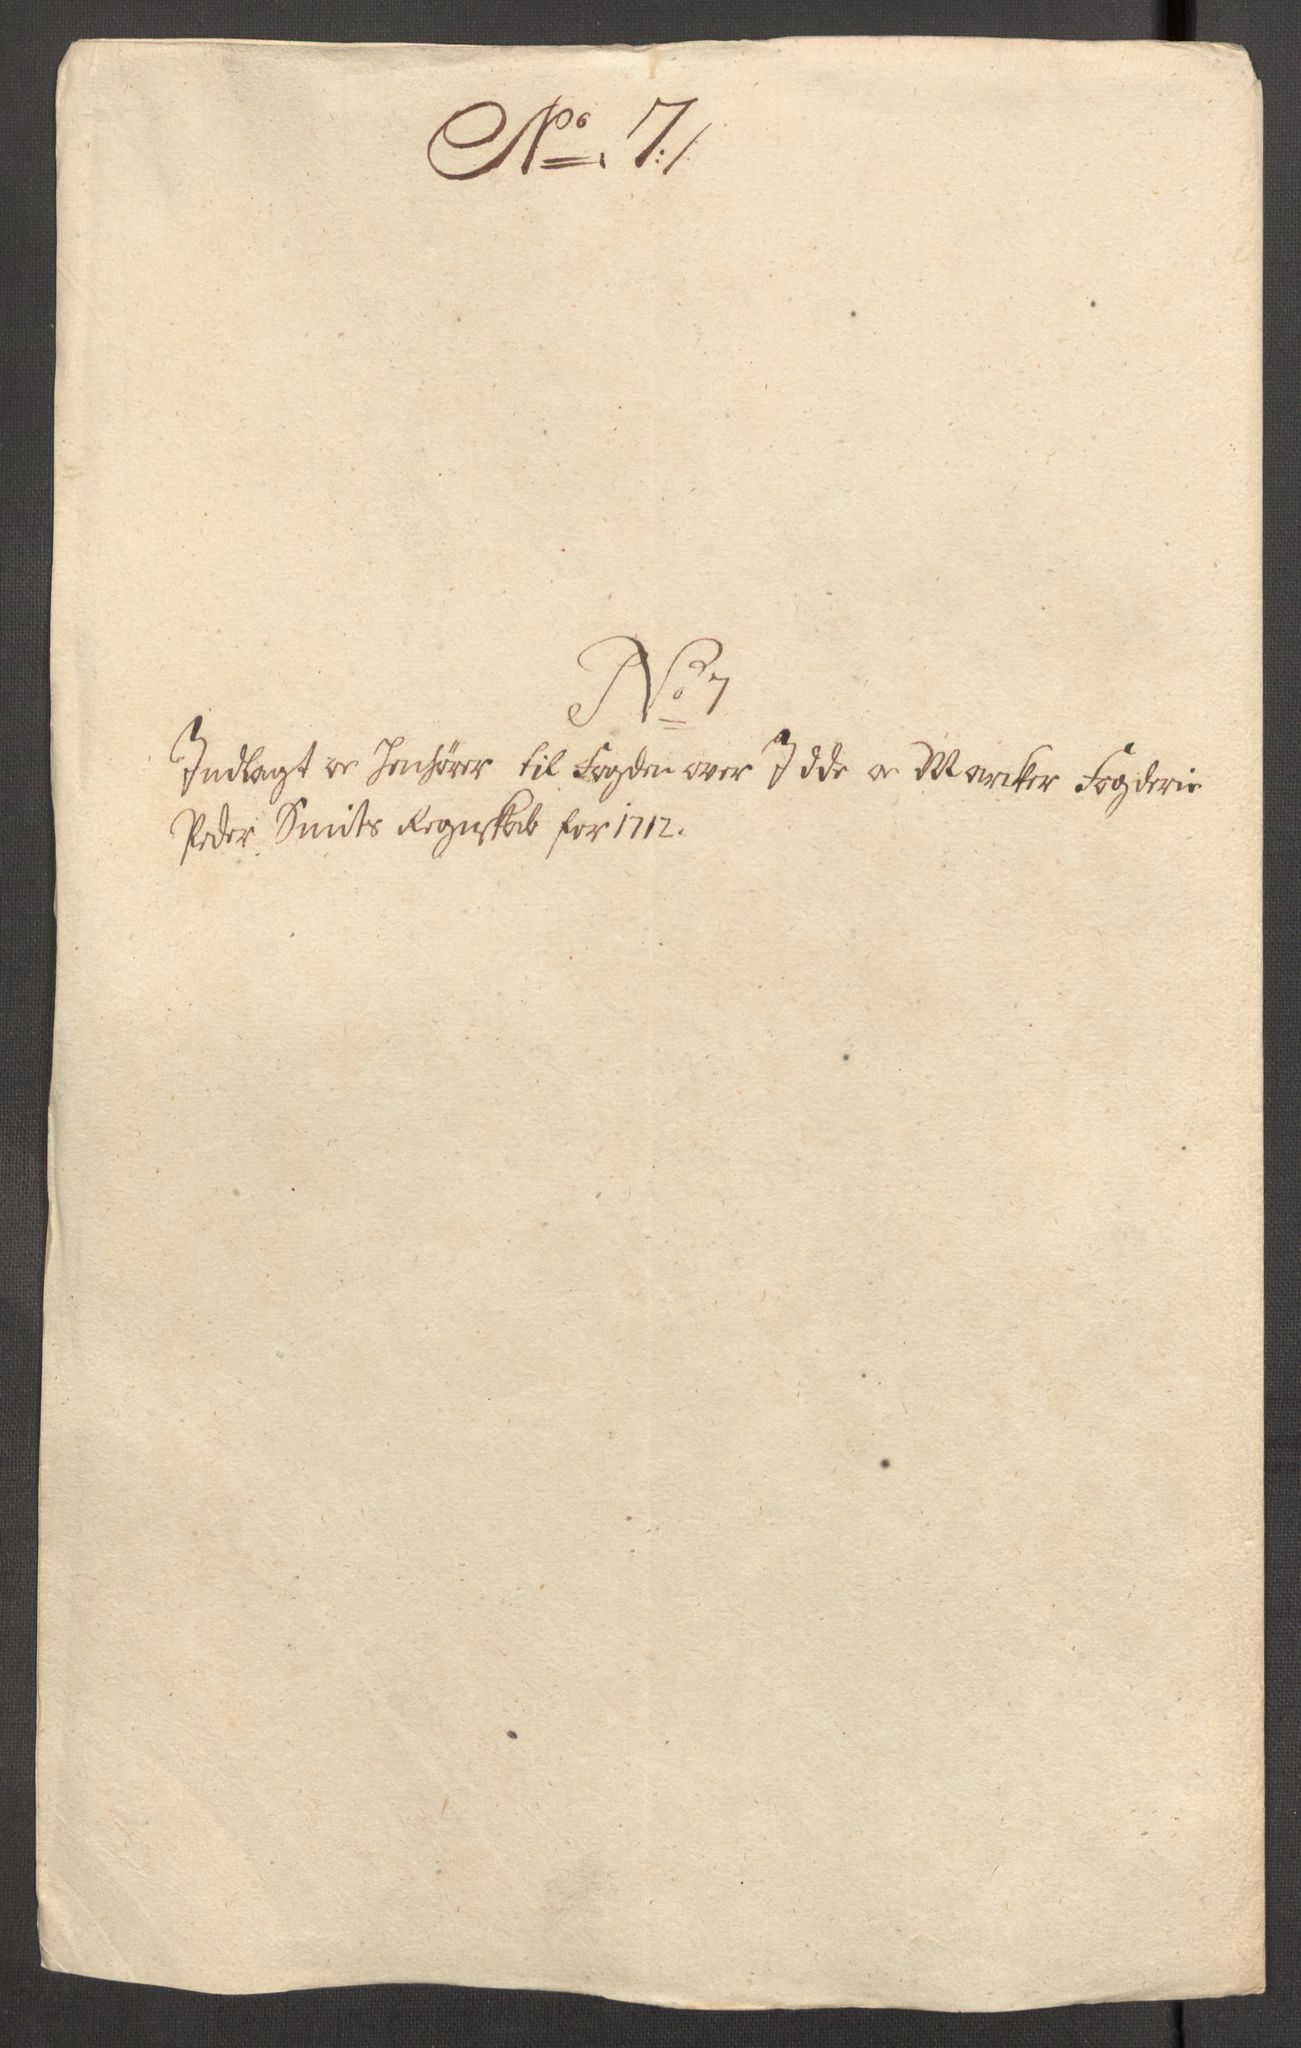 No. 7:/
No 7
Indlagt og Henhører til Fogden over Idde og Marker Fogderie
Peder Smits Regnskab for 1712.